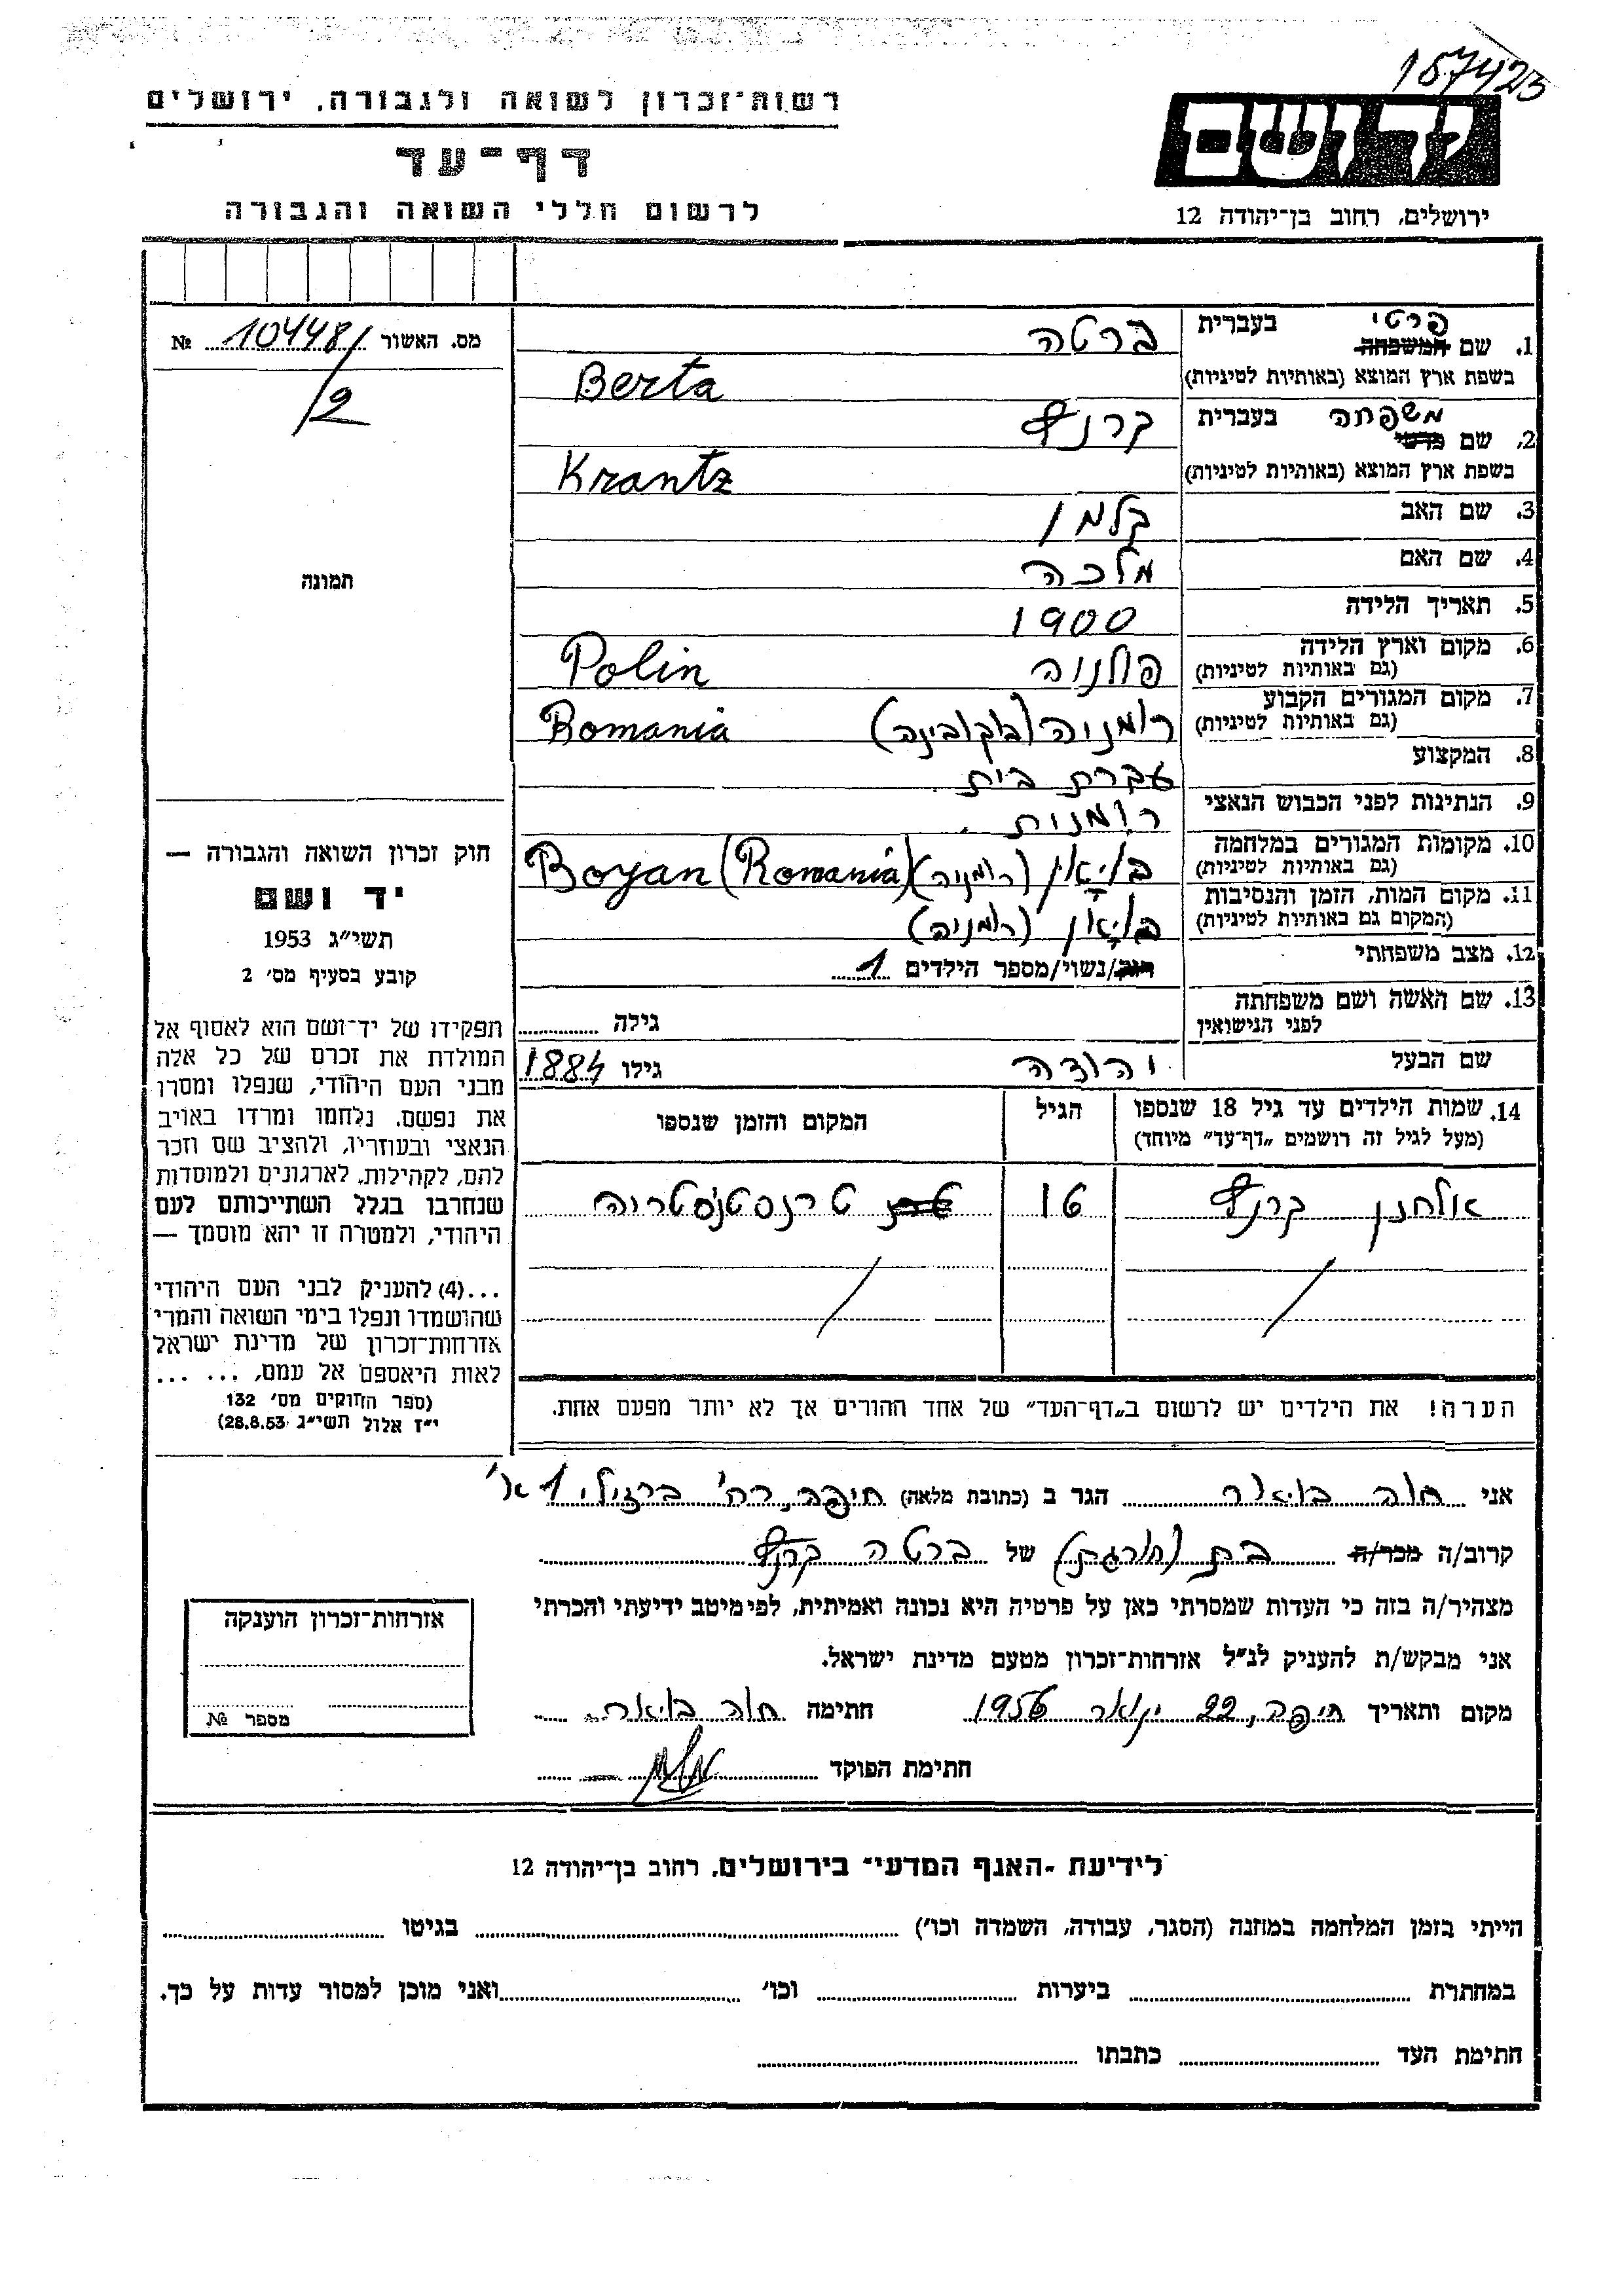 157423
רשות־זכרון לשואה ולגבורה, ירושלים
דף־עד
לרשום חללי השואה והגבורה
ידושם
ירושלים, רחוב בן־יהודה 12
מס. האשור № 10448/
/2
תמונה
1. שם המשפחה פרטי בעברית ברטה
בשפת ארץ המוצא (באותיות לטיניות) Berta
2. שם פרטי משפחה בעברית קרנץ
בשפת ארץ המוצא (באותיות לטיניות) Krantz
3. שם האב קלמן
4. שם האם מלכה
5. תאריך הלידה 1900
6. מקום וארץ הלידה פולניה Polin
(גם באותיות לטיניות)
7. מקום המגורים הקבוע רומניה (בוקובינה) Romania
(גם באותיות לטיניות)
8. המקצוע עקרת בית
9. הנתינות לפני הכבוש הנאצי רומנית
10. מקומות המגורים במלחמה בויאן (רומניה) Boyan (Romania)
(גם באותיות לטיניות)
11. מקום המות, הזמן והנסיבות בויאן (רומניה)
(המקום גם באותיות לטיניות)
12. מצב משפחתי רווק/נשוי/מספר הילדים 1
13. שם האשה ושם משפחתה
לפני הנישואין גילה
שם הבעל יהודה גילו 1884
14. שמות הילדים עד גיל 18 שנספו הגיל המקום והזמן שנספו
(מעל לגיל זה רושמים „דף־עד” מיוחד)
אלחנן קרנץ 16 טרנסטנסטריה
הערה! את הילדים יש לרשום ב„דף־העד” של אחד ההורים אך לא יותר מפעם אחת.
חוק זכרון השואה והגבורה —
יד ושם
תשי״ג 1953
קובע בסעיף מס׳ 2
תפקידו של יד־ושם הוא לאסוף אל
המולדת את זכרם של כל אלה
מבני העם היהודי, שנפלו ומסרו
את נפשם, נלחמו ומרדו באויב
הנאצי ובעוזריו, ולהציב שם וזכר
להם, לקהילות, לארגונים ולמוסדות
שנחרבו בגלל השתייכותם לעם
היהודי, ולמטרה זו יהא מוסמך —
...(4) להעניק לבני העם היהודי
שהושמדו ונפלו בימי השואה והמרי
אזרחות־זכרון של מדינת ישראל
לאות היאספם אל עמם, ... ...
(ספר החוקים מס׳ 132
י״ז אלול תשי״ג 28.8.53)
אני חוה בויאר הגר ב (כתובת מלאה) חיפה, רח׳ ברזילי 1 א׳
קרוב/ה מכר/ה בת (חורגת) של ברטה קרנץ
מצהיר/ה בזה כי העדות שמסרתי כאן על פרטיה היא נכונה ואמיתית, לפי מיטב ידיעתי והכרתי
אני מבקש/ת להעניק לנ״ל אזרחות־זכרון מטעם מדינת ישראל.
מקום ותאריך חיפה, 22 ינואר 1956 חתימה חוה בויאר
חתימת הפוקד
אזרחות־זכרון הוענקה
מספר №
לידיעת ־האגף המדעי־ בירושלים, רחוב בן־יהודה 12
הייתי בזמן המלחמה במחנה (הסגר, עבודה, השמדה וכו׳) בגיטו
במחתרת ביערות וכו׳ ואני מוכן למסור עדות על כך.
חתימת העד כתבתו